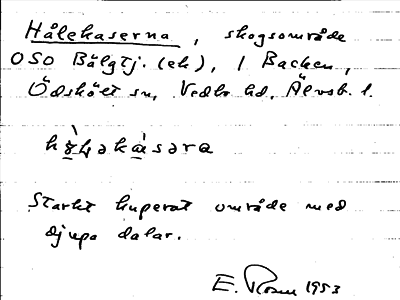 Hålekaserna, skogsområde
OSO Bälgtj. (ek), 1 Backen,
Ödskölt sn, Vedbo hd, Älvsb. l.
Starkt kuperat område med
djupa dalar.
E. Rosen 1953